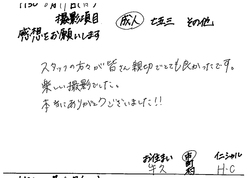 撮影項目 成人 七五三 その他
感想をお願いします
スタッフの方々が皆さん親切でとても良かったです。
楽しい撮影でした。
本当にありがとうございました!!
お住まい 市町村 イニシャル
H.C